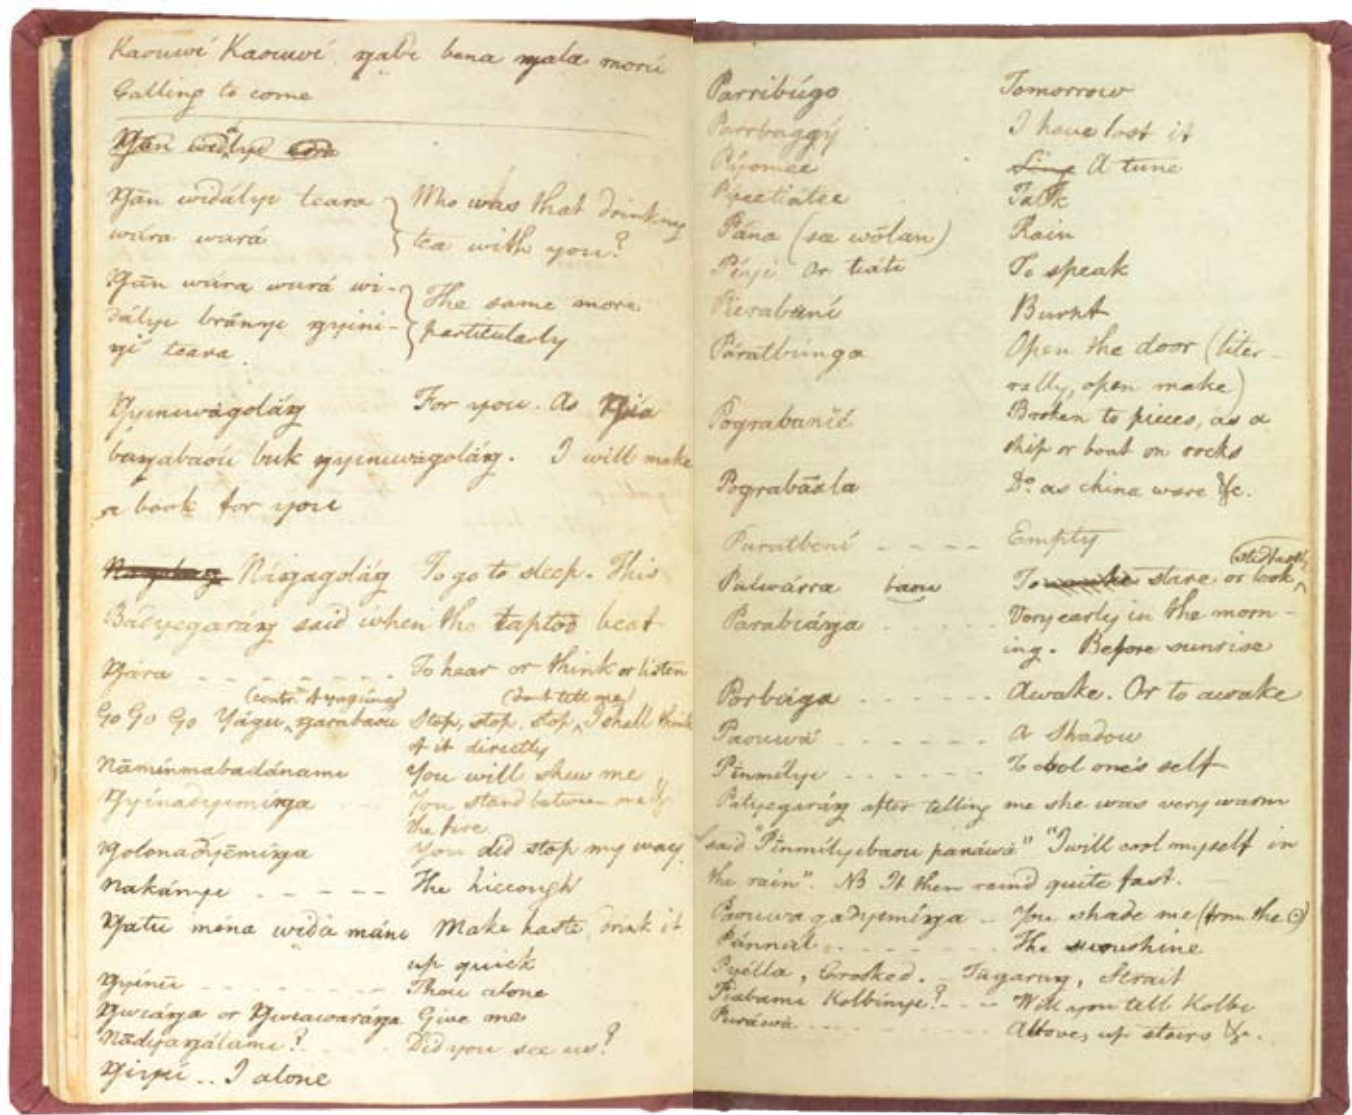 Kaouwi Kaouwi ŋabi bana ŋala morú
Calling to come
Ŋān widályi teara Who was that drinking
wúra wurá tea with you?
Ŋān wúra wurá wi-
The same more
dályi brányi ŋyini-
particularly
ŋi teara
Ŋyinuwágoláŋ For you. As Ŋia
baŋabaou buk ŋyinuwagoláŋ. I will make
a book for you
Náŋagoláŋ To go to sleep. This
Badyegaráŋ said when the taptoo beat
Ŋára To hear or think or listen
(don't tell me)
Go Go Go Yágu ŋarabaou Stop, stop, stop, I shall think
of it directly
Nāmínmabadánami You will shew me
Ŋyínadyimíŋa You stand between me &
the fire
Ŋolonadyēmíŋa You did stop my way
Nakánye The hiccough
Ŋatu ména wida máni Make haste, drink it
up quick
Ŋyíni Thou alone
Ŋwiáŋa or Ŋwiawaráŋa Give me
Nādyaŋálami? Did you see us?
Ŋiŋú .. I alone
Parribúgo Tomorrow
Parrbuggý I have lost it
Pýomee Sing A tune
Piyetiátee Talk
Pána (see wólan) Rain
Píyi or tiáti To speak
Pierabuní Burnt
Páratbúnga Open the door (liter-
rally, open make)
Pograbanié Broken to pieces, as a
ship or boat on rocks
Pograbāala Do. as china ware &c.
Paratbení Empty
(stedfastly
Patwárra baou To stare or look
Parabiáŋa Very early in the morn-
ing. Before sunrise
Porbúga Awake. Or to awake
Paouwá A shadow
Pīnmílyi To cool one's self
Patyegaráŋ after telling me she was very warm
said "Pīnmílyibaou panáwá" "I will cool myself in
the rain". NB It then rain'd quite fast.
Paouwagadyimíŋa You shade me (from the ☉)
Pánnál The sunshine
Pyélla, Crooked. Tugarug, Strait
Piabami Kolbinyi? Will you tell Kolbi
Puráwá Above, up stairs &c.